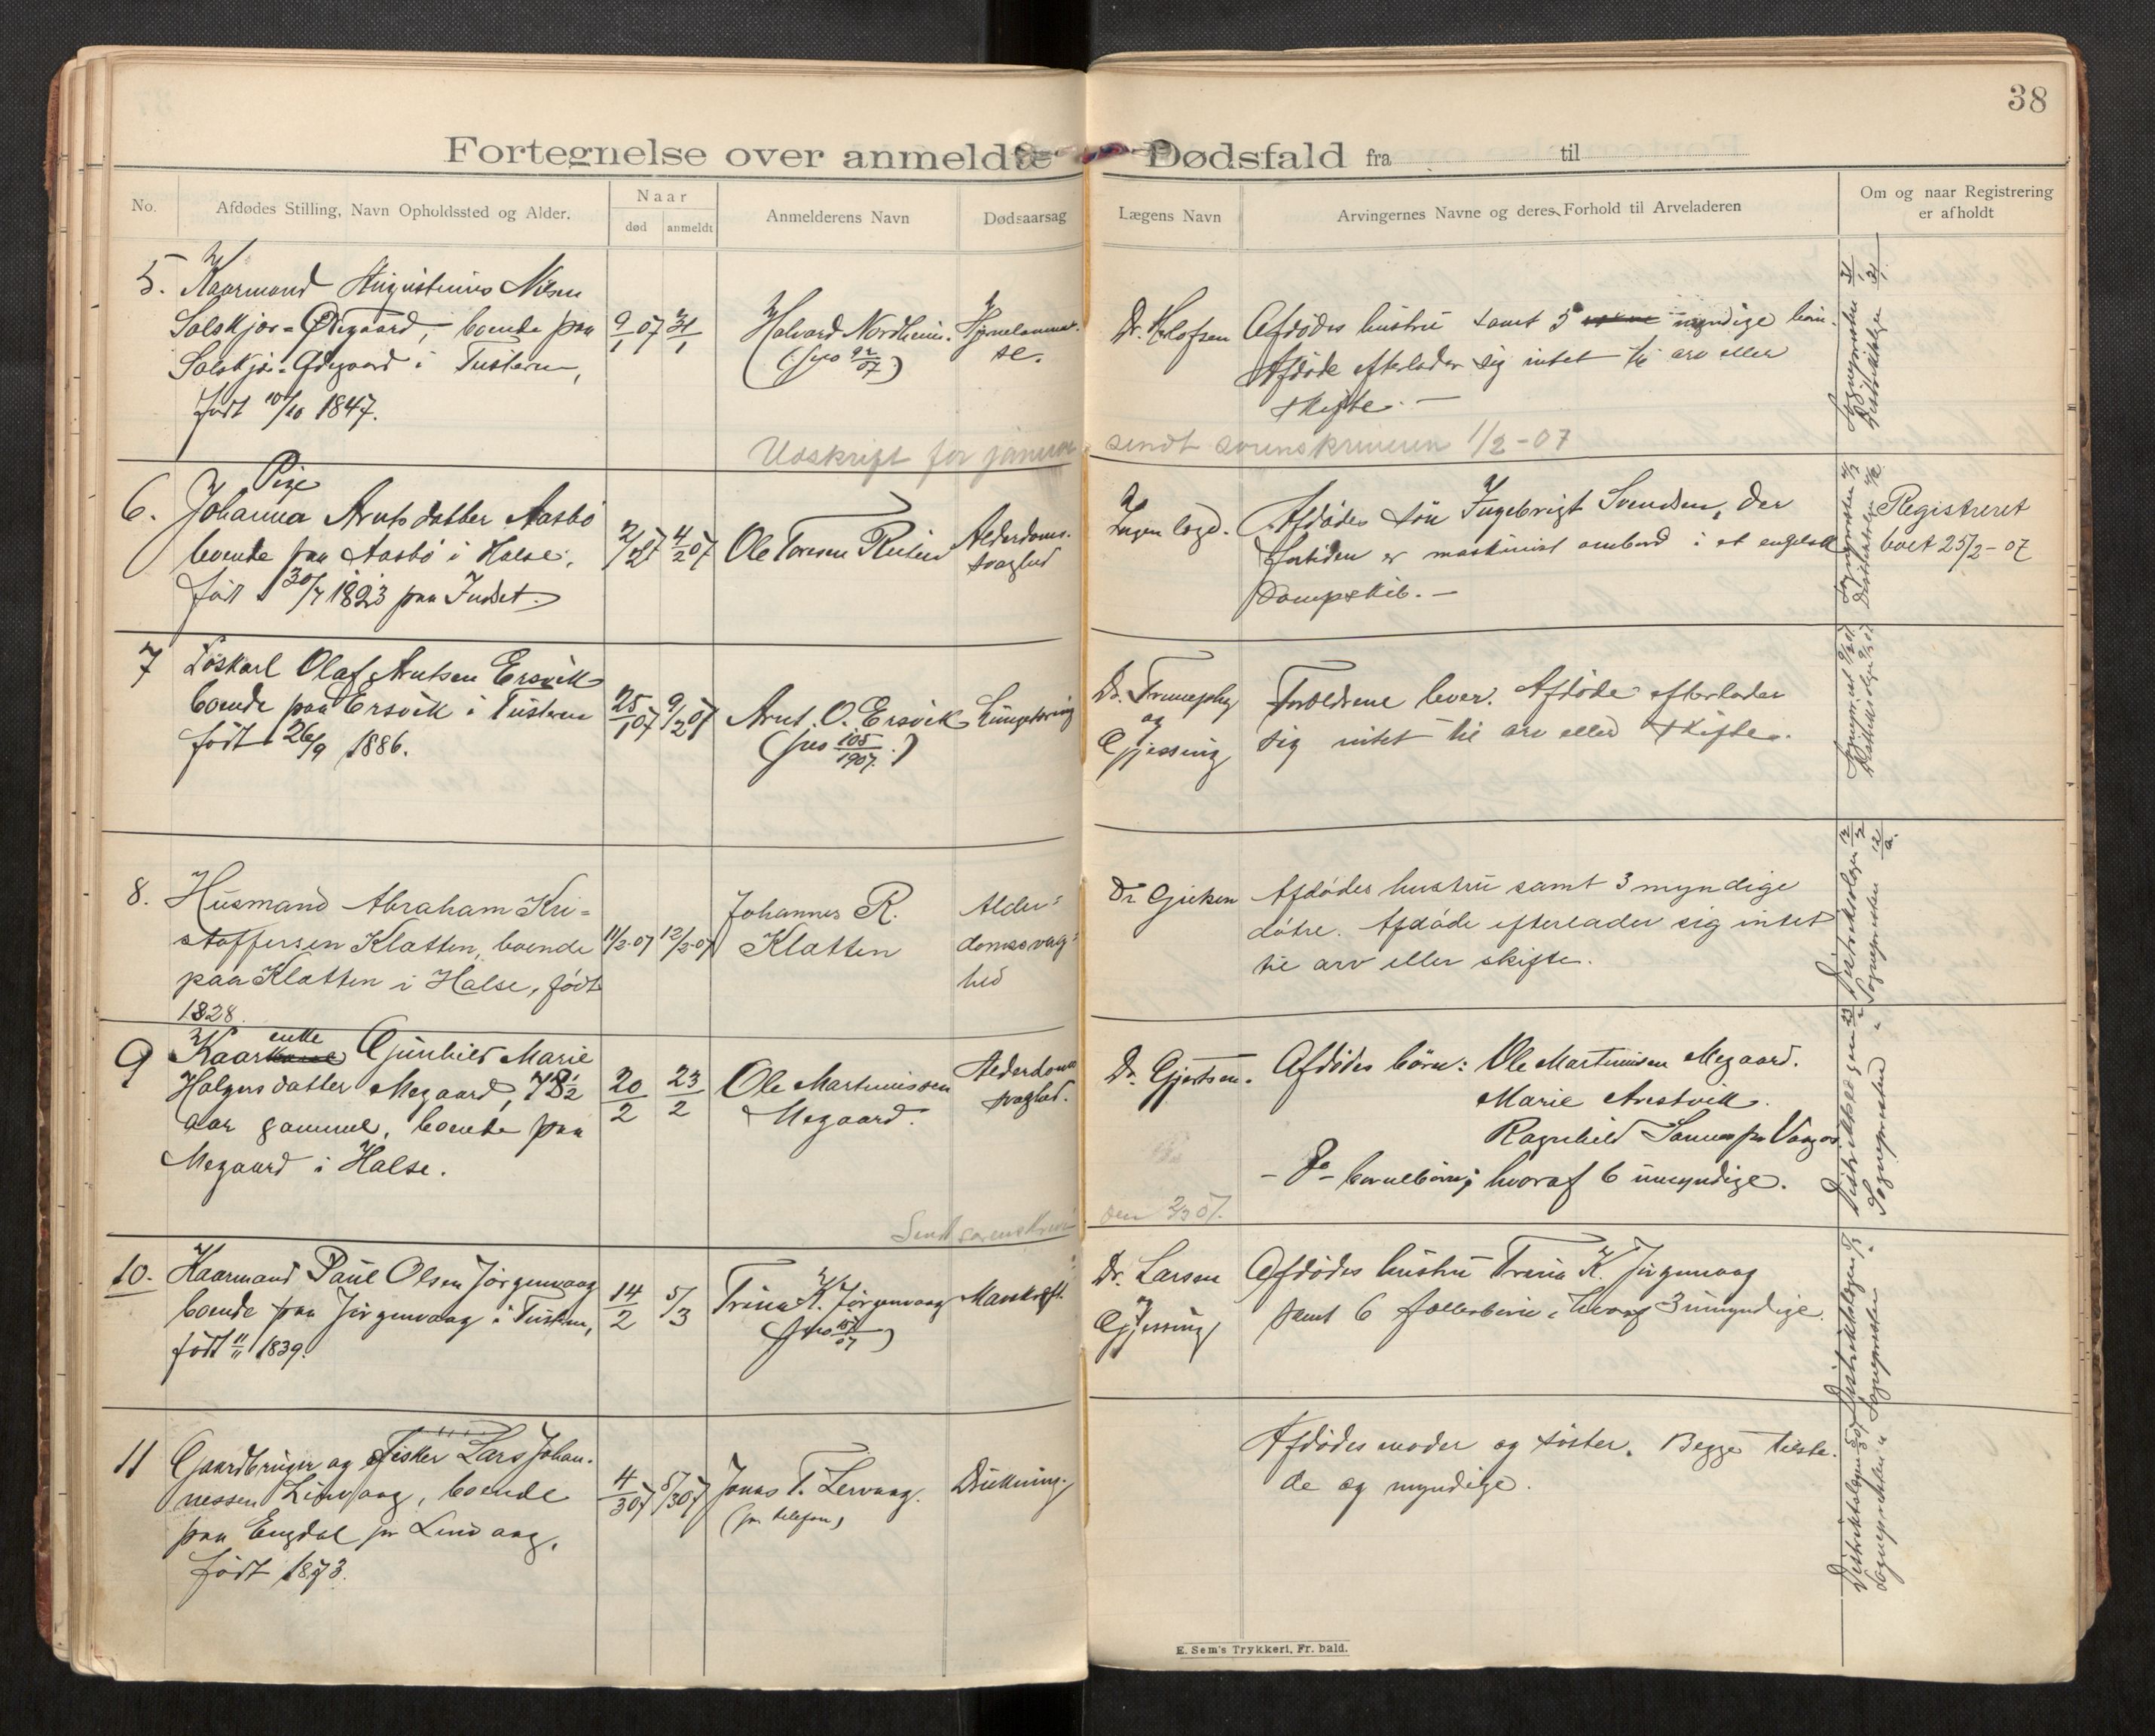 38
Fortegnelse over anmeldte Dødsfald fra til
No.
Afdødes Stilling, Navn Opholdssted og Alder.
Naar
død
anmeldt
Anmelderens Navn
Dødsaarsag
Lægens Navn
Arvingernes Navne og deres Forhold til Arveladeren
Om og naar Registrering
er afholdt
5. Kaarmand Augustinus Nilsen
Solskjør-Ødegaard, boende paa
Solskjør-Ødegaard i Tusteren,
født 10/10 1847.
9/1 07
31/1
Halvard Nordheim.
(jno 92/07)
se.
Dr.
Afdødes hustru samt 5 myndige
Afdøde efterlader sig intet til arv eller
skifte. —
Sognepresten 31/1
Distriktslægen 31/1
Udskrift for januar sendt sorenskriveren 1/2-07
6. Pige
Johanna Arntsdatter Aasbø
boende paa Aasbø i Halse.
født 30/7 1823 paa Indset.
2/2 07
4/2 07
Ole Toresen
Alderdoms-
svaghed
Ingen læge.
Afdødes søn Ingebrigt Svendsen, der
fortiden er maskinist ombord i et engelsk
Dampskib. —
Sognepresten 4/2
Distriktslægen 4/2
Registreret
boet 25/2-07
7 Løskarl Olaf Arntsen Ersvik
boende paa Ersvik i Tusteren
født 26/9 1886.
25/1 07
9/2 07
Arnt. O. Ersvik
(jno 105/1907.)
Lungetæring
Dr.
og
Gjessing
Forældrene lever. Afdøde efterlader
sig intet til arv eller skifte.
8. Husmand Abraham Kri-
stoffersen Klatten, boende
paa Klatten i Halse, født
1828.
11/2-07
12/2-07
Johannes R.
Klatten
Alder-
domssvag-
hed
Dr.
Afdødes hustru samt 3 myndige
døtre. Afdøde efterlader sig intet
til arv eller skifte.
Distriktslægen 12/2
Sognepresten 12/2
9 Kaarenke Gunhild Marie
Halgusdatter Megaard, 78½
aar gammel, boende paa
Megaard i Halse.
20/2
23/2
Ole Martinussen
Megaard.
Alderdoms
svaghed.
Dr. Gjertsen.
Afdødes børn: Ole Martinusen Megaard.
Marie Arestvik.
Ragnhild
- 8 - barnebørn; hvoraf 6 umyndige.
Distriktslægen 23/2
Sognepresten "
Sendt sorenskriv. den 2/3 07.
10. Kaarmand Paul Olsen Jørgenvaag
boende paa Jørgenvaag i Tusteren,
født 11/11 1839.
14/2
5/3
Trina K. Jørgenvaag
Marskræft.
Dr. Larsen
og
Gjessing
Afdødes hustru Trina K. Jørgenvaag
samt 6 fællesbørn, hvoraf 3 umyndige.
Distriktslægen
Sognepresten "
11 Gaardbruger og Fisker Lars Johan-
nessen Linvaag, boende
paa Engdal pr Linvaag.
født 1873.
4/3 07
5/3 07
Jonas T. Lervaag.
(pr. telefon)
Drukning.
Afdødes moder og søster. Begge tilste-
de og myndige.
Distriktslægen
Sognepresten "
E. Sem's Trykkeri, Fr. hald.